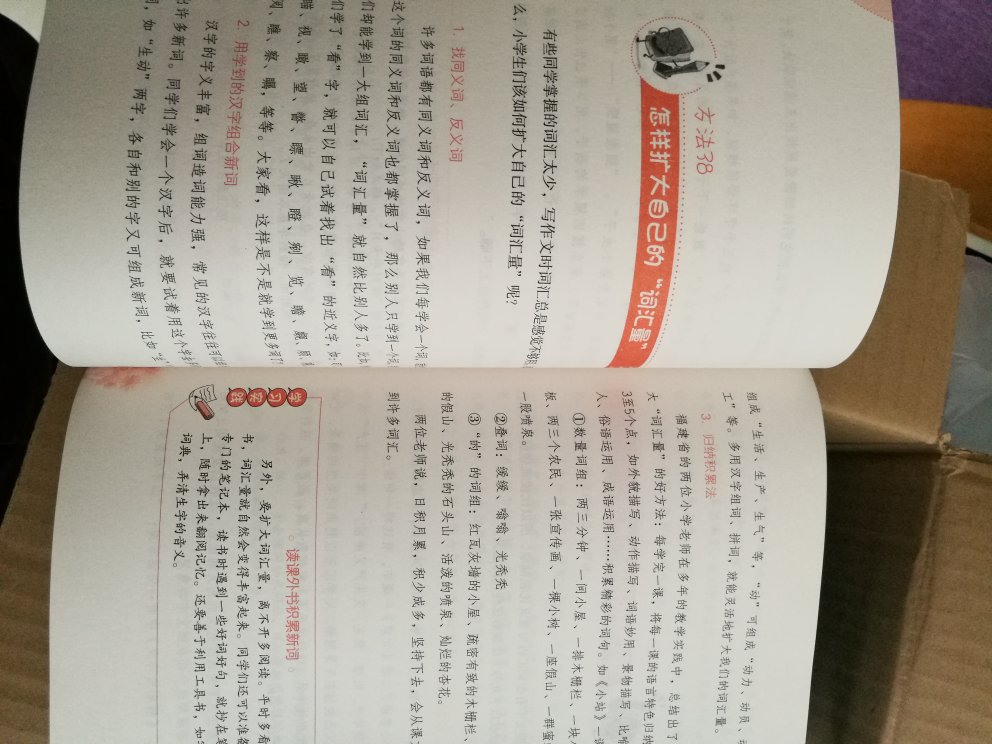 方法38
怎样扩大自己的“词汇量”
有些同学掌握的词汇太少，写作文时词汇总是感觉不
么，小学生们该如何扩大自己的“词汇量”呢？
1. 找同义词、反义词
许多词语都有同义词和反义词，如果我们每学会一个词，
这个词的同义词和反义词也都掌握了，那么别人只学到一个词
们却能学到一大组词汇，“词汇量”就自然比别人多了。比如
们学了“看”字，就可以自己试着找出“看”的近义字，如：
瞄、视、瞰、望、瞥、瞟、瞅、瞪、览、瞻、
阅、瞧、察、瞩，等等。大家看，这样是不是就学到更多词了
2. 用学到的汉字组合新词
汉字的字义丰富，组词造词能力强，常见的汉字往往可以
出许多新词。同学们学会一个汉字后，就要试着用这个字来
词，如“生动”两字，各自和别的字又可组成新词，比如“生
组成“生活、生产、生气”等，“动”可组成“动力、动员、
工”等。多用汉字组词、拼词，就能灵活地扩大我们的词汇量。
3. 归纳积累法
福建省的两位小学老师在多年的教学实践中，总结出了
大“词汇量”的好方法：每学完一课，将每一课的语言特色归纳
3至5个点，如外貌描写、动作描写、词语妙用、景物描写、比喻
人、俗语运用、成语运用……积累精彩的词句。如《小站》一课
①数量词组：两三分钟、一间小屋、一排木栅栏、一块
板、两三个农民、一张宣传画、一棵小树、一座假山、一群蜜
一股喷泉。
②叠词：缓缓、嗡嗡、光秃秃
③“的”的词组：红瓦灰墙的小屋、疏密有致的木栅栏、
的假山、光秃秃的石头山、活泼的喷泉、灿烂的杏花。
两位老师说，日积月累，积少成多，坚持下去，会从课
到许多词汇。
学习实践
读课外书积累新词
另外，要扩大词汇量，离不开多阅读。平时多看
书，词汇量就自然会变得丰富起来。同学们还可以准备
专门的笔记本，读书时遇到一些好词好句，就抄在笔
上，随时拿出来翻阅记忆。还要善于利用工具书，如
词典，弄清生字的音义。